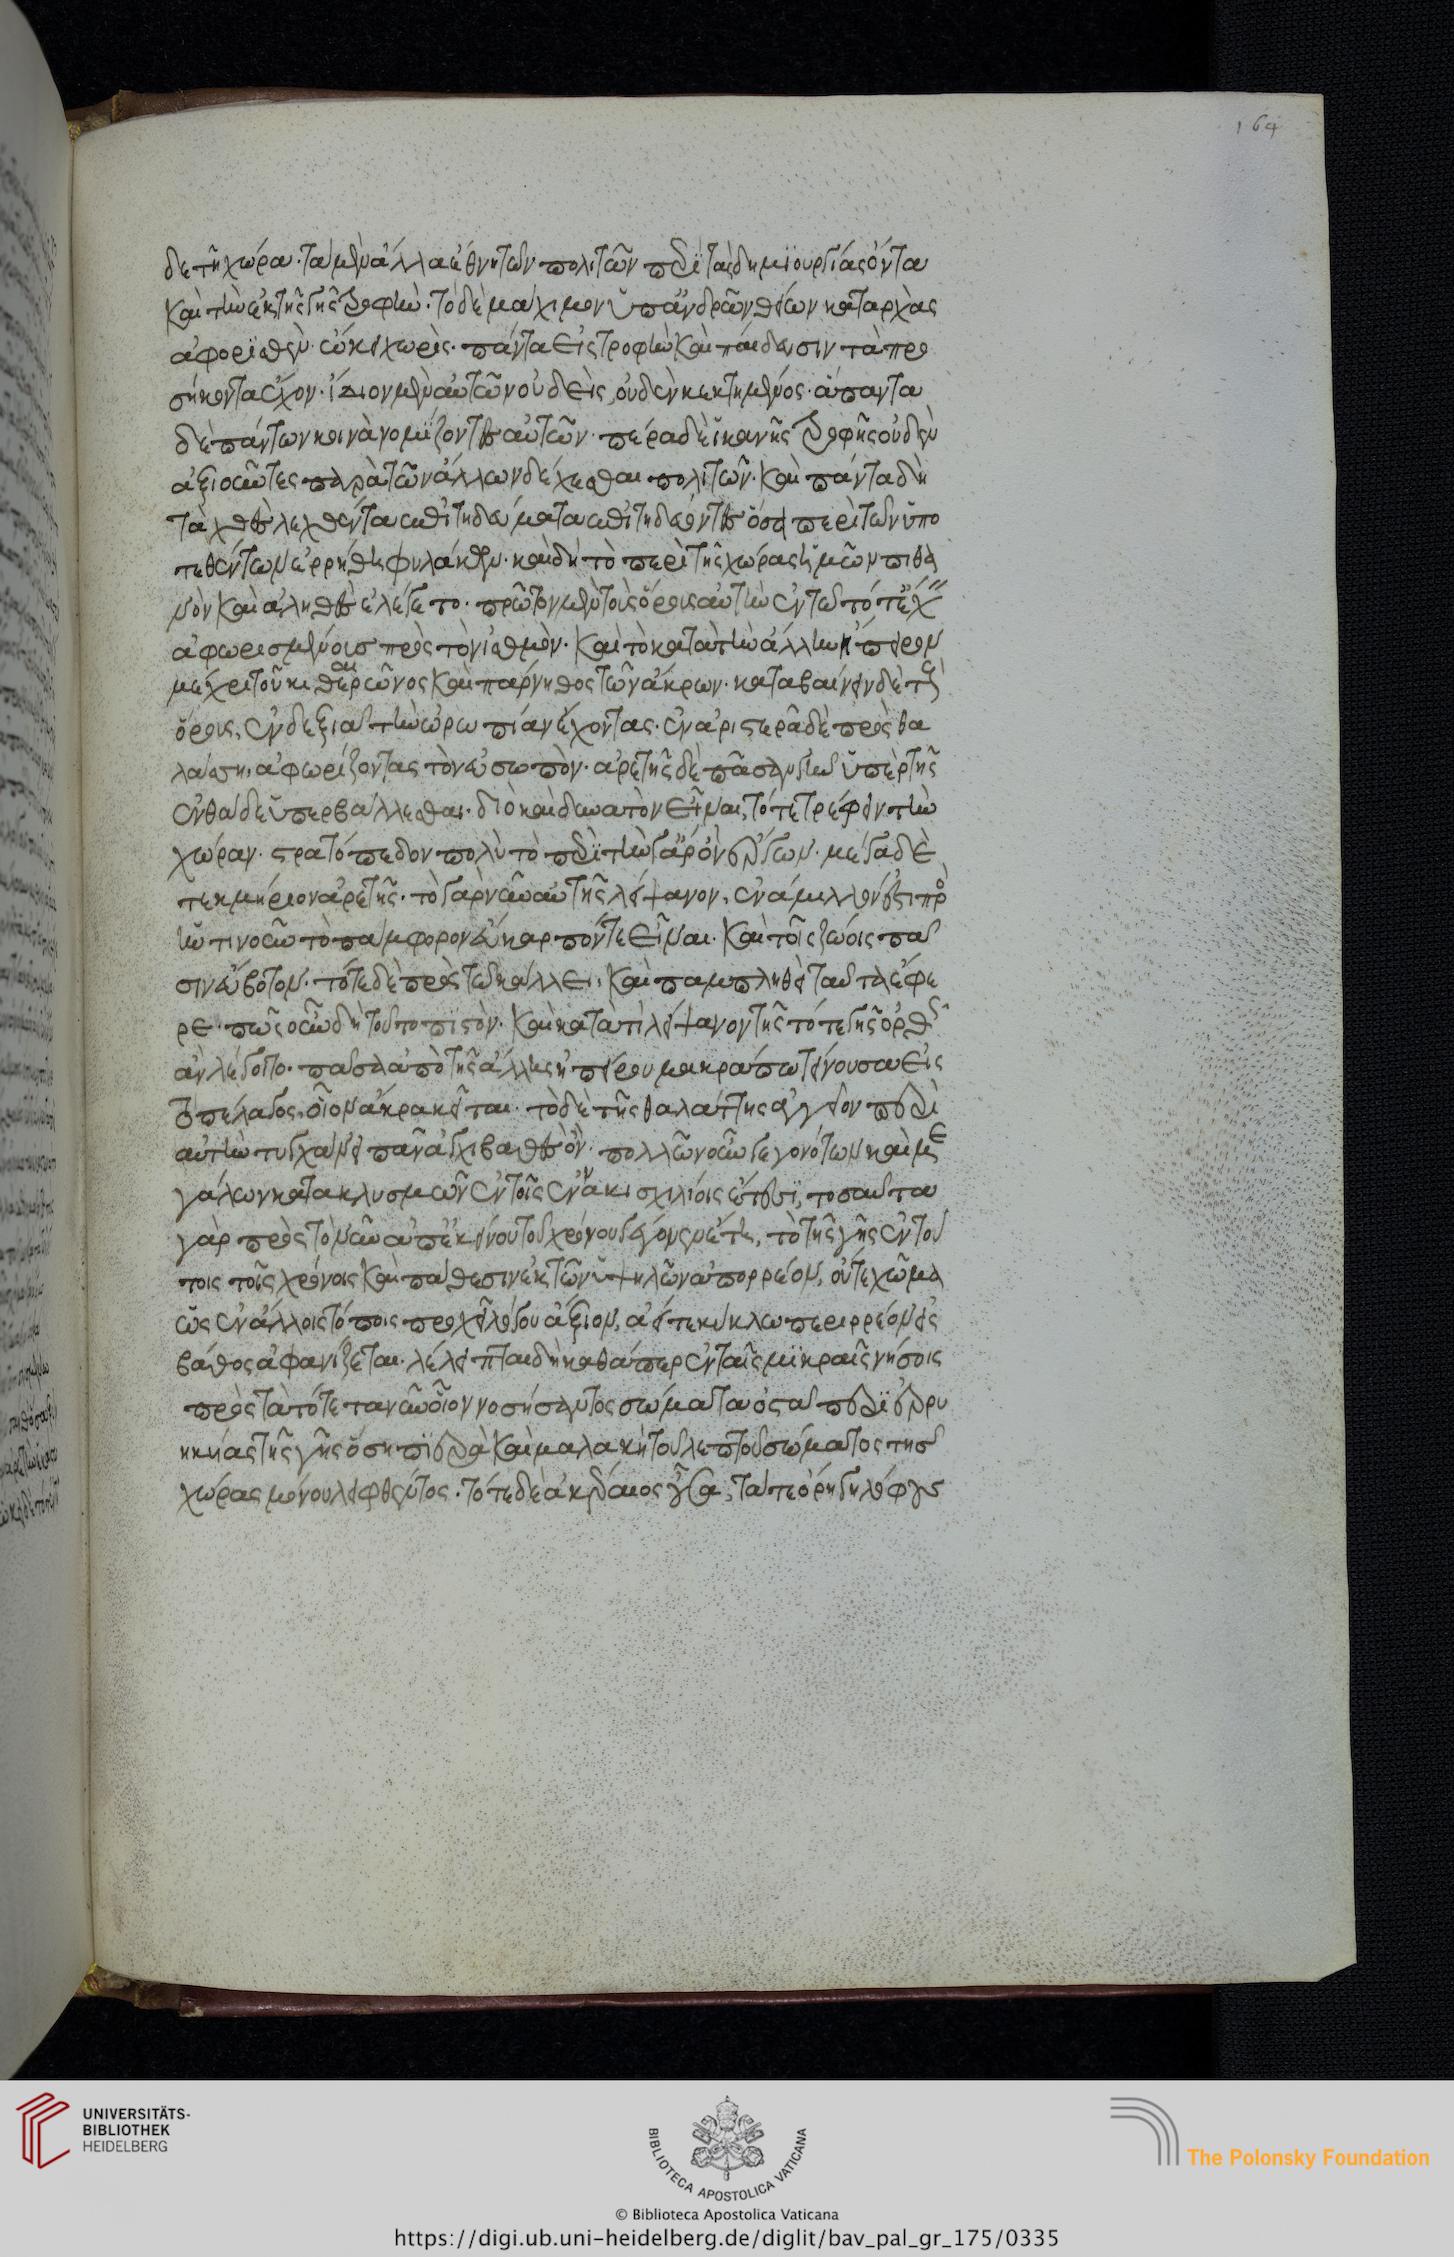 164
δε τῆ χώρα· τὰ μὲν ἄλλα ἔθνη τῶν πολιτῶν περὶ τὰς δημιουργίας ὄντα
καὶ τὴν ἐκ τῆς γῆς τροφὴν· τὸ δὲ μάχιμον ὑπ' ἀνδρῶν θείων κατ' ἀρχὰς
ἀφορισθὲν ὤκει χωρὶς· πάντα εἰς τροφὴν καὶ παίδευσιν τὰ προ
σήκοντα ἔχον· ἴδιον μὲν αὐτῶν οὐδεὶς οὐδὲν κεκτημένος· ἅπαντα
δὲ πάντων κοινὰ νομίζοντες αὐτῶν· πέρα δὲ ἱκανῆς τροφῆς οὐδὲν
ἀξιοῦντες παρὰ τῶν ἄλλων δέχεσθαι πολιτῶν· καὶ πάντα δὴ
τὰ χθὲς λεχθέντα ἐπιτηδεύματα ἐπιτηδεύοντες ὅσα περὶ τῶν ὑπο
τεθέντων ἐρρήθη φυλάκων· καὶ δὴ τὸ περὶ τῆς χώρας ἡμῶν πιθα
νὸν καὶ ἀληθὲς ἐλέγετο· πρῶτον μὲν τοὺς ὅρους αὐτὴν ἐν τῶ τότ' ἔχειν
ἀφωρισμένους πρὸς τὸν ἰσθμὸν· καὶ τὸ κατὰ τὴν ἄλλην ἤπειρον
μέχρι τοῦ κιθαιρῶνος καὶ πάρνηθος τῶν ἄκρων· καταβαίνειν δὲ τοὺς
ὅρους, ἐν δεξιᾶ τὴν ὠρωπίαν ἔχοντας· ἐν ἀριστερᾶ δὲ πρὸς θα
λάσσης, ἀφωρίζοντας τὸν ἀσωπὸν· ἀρετῆς δὲ πᾶσαν γῆν ὑπὲρ τῆς
ἐνθάδε ὑπερβάλλεσθαι· διὸ καὶ δυνατὸν εἶναι, τότε τρέφειν τὴν
χώραν· στρατόπεδον πολὺ τὸ περὶ τὴν ἔργων· μέγα δὲ
τεκμήριον ἀρετῆς· τὸ γὰρ νῦν αὐτῆς λείψανον, ἐνάμιλλόν ἐστι πρὸς
ἡντινοῦν τὸ πάμφορον εὔκαρπόν τε εἶναι· καὶ τοῖς ζώοις πᾶ
σιν εὔβοτον· τότε δὲ πρὸς τῶ κάλλει, καὶ παμπλήθη ταῦτα ἔφε
ρε· πῶς οὖν δὴ τοῦτο πιστὸν· καὶ κατὰ τί λείψανον τῆς τότε γῆς ὀρθῶς
ἂν λέγοιτο· πᾶσα ἀπὸ τῆς ἄλλης ἠπείρου μακρὰ προτείνουσα εἰς
τὸ πέλαγος, οἷον ἄκρα κεῖται· τὸ δὲ τῆς θαλάττης ἀγγεῖον περὶ
αὐτὴν τυγχάνει πᾶν ἀγχιβαθὲς ὂν· πολλῶν οὖν γεγονότων καὶ με
γάλων κατακλυσμῶν ἐν τοῖς ἐννάκισχιλίοις ἔτεσι, τοσαῦτα
γὰρ πρὸς τὸ νῦν ἀπ' ἐκείνου τοῦ χρόνου γέγονεν ἔτη, τὸ τῆς γῆς ἐν τού
τοις τοῖς χρόνοις καὶ πάθεσιν ἐκ τῶν ὑψηλῶν ἀπορρέον, οὔτε χῶμα
ὡς ἐν ἄλλοις τόποις προχεῖ λόγου ἄξιον, ἀεί τε κύκλω περιρρέον εἰς
βάθος ἀφανίζεται· λέλειπται δὴ καθάπερ ἐν ταῖς μικραῖς νήσοις
πρὸς τὰ τότε τὰ νῦν οἷον νοσήσαντος σώματα ὀστᾶ περιερρυ
ηκυίας τῆς γῆς ὅση πίειρα καὶ μαλακὴ τοῦ λεπτοῦ σώματος τῆς
χώρας μόνου λειφθέντος· τότε δὲ ἀκέραιος οὖσα, τά τε ὄρη γηλόφους
UNIVERSITÄTS-
BIBLIOTHEK
HEIDELBERG
BIBLIOTECA APOSTOLICA VATICANA
The Polonsky Foundation
© Biblioteca Apostolica Vaticana
https://digi.ub.uni-heidelberg.de/diglit/bav_pal_gr_175/0335